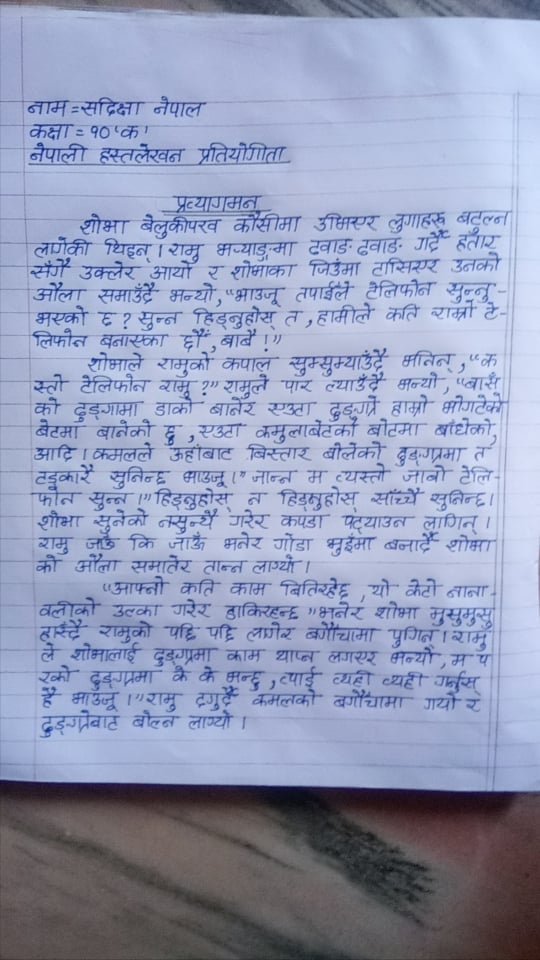 नाम = सदिक्षा नेपाल
कक्षा = १० 'क'
नेपाली हस्तलेखन प्रतियोगिता
प्रत्यागमन
शोभा बेलुकीपख कौसीमा उभिएर लुगाहरू बटुल्न
लागेकी थिइन् । रामु भऱ्याङमा ढ्वाङ ढ्वाङ गर्दै हतार
सँगै उक्लेर आयो र शोभाका जिउमा टाँसिएर उनको
औंला समाउँदै भन्यो, "भाउजू तपाईंले टेलिफोन सुन्नु-
भएको छ ? सुन्न हिड्नुहोस् त, हामीले कति राम्रो टे-
लिफोन बनाएका छौं, बाबै !"
शोभाले रामुको कपाल सुम्सुम्याउँदै भनिन्, "क
स्तो टेलिफोन रामु ?" रामुले पार ल्याउँदै भन्यो, "बाँस
को ढुङ्ग्रामा डोको बानेर एउटा ढुङ्ग्रो हाम्रो भोगटेको
बोटमा बानेको छु, एउटा कमुलाबेटको बोटमा बाँधेको,
आदि । कमलले उहाँबाट बिस्तार बोलेको ढुङ्ग्रामा त
टड्कारै सुनिन्छ भाउजू ।" जान्न म त्यस्तो जाबो टेलि-
फोन सुन्न ।" हिड्नुहोस् न हिड्नुहोस् साँच्चै सुनिन्छ ।
शोभा सुनेको नसुन्यै गरेर कपडा पट्याउन लागिन् ।
रामु जाऊँ कि जाऊँ भनेर गोडा भुईंमा बजार्दै शोभा
को औंला समातेर तान्न लाग्यो ।
"आफ्नो कति काम बितिरहेछ, यो केटो नाना-
वलीको उल्का गरेर डाकिरहन्छ" भनेर शोभा मुसुमुसु
हाँस्दै रामुको पछि पछि लागेर बगैँचामा पुगिन् । रामु
ले शोभालाई ढुङ्ग्रामा काम थाप्न लगाएर भन्यो, म प
रको ढुङ्ग्रामा के के भन्छु, त्याई व्यहाँ व्यहाँ गर्नुस्
है भाउजू ।" रामु दगुर्दै कमलको बगैँचामा गयो र
ढुङ्ग्रोबाट बोल्न लाग्यो ।